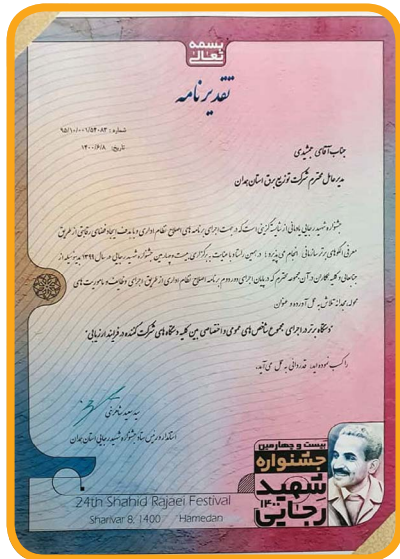 بسمه تعالی
تقدیرنامه
شماره: ۹۵/۱۰/۰۰۶/۵۴۰۸۳
تاریخ: ۱۴۰۰/۶/۸
جناب آقای جمشیدی
مدیرعامل محترم شرکت توزیع برق استان همدان
جشنواره شهید رجایی یادمانی از شایسته گزینی است که در جهت اجرای برنامه های اصلاح نظام اداری و با هدف ایجاد فضای رقابتی از طریق
معرفی الگوهای برتر سازمانی انجام می پذیرد؛ در همین راستا با عنایت به برگزاری بیست و چهارمین جشنواره شهید رجایی در سال ۱۳۹۹ بدینوسیله از
جنابعالی و کلیه همکاران در آن مجموعه محترم که در پایان اجرای دور دوم برنامه اصلاح نظام اداری از طریق اجرای وظایف و ماموریت های
محوله مجدانه تلاش به عمل آورده و عنوان
"دستگاه برتر در اجرای مجموع شاخص های عمومی و اختصاصی بین کلیه دستگاه های شرکت کننده در فرایند ارزیابی"
را کسب نموده اید، قدردانی به عمل می آید.
سید سعید شاهرخی
استاندار و رئیس ستاد جشنواره شهید رجایی استان همدان
بیست و چهارمین
جشنواره
شهید
۱۴۰۰
رجایی
24th Shahid Rajaei Festival
Sharivar 8, 1400 Hamedan